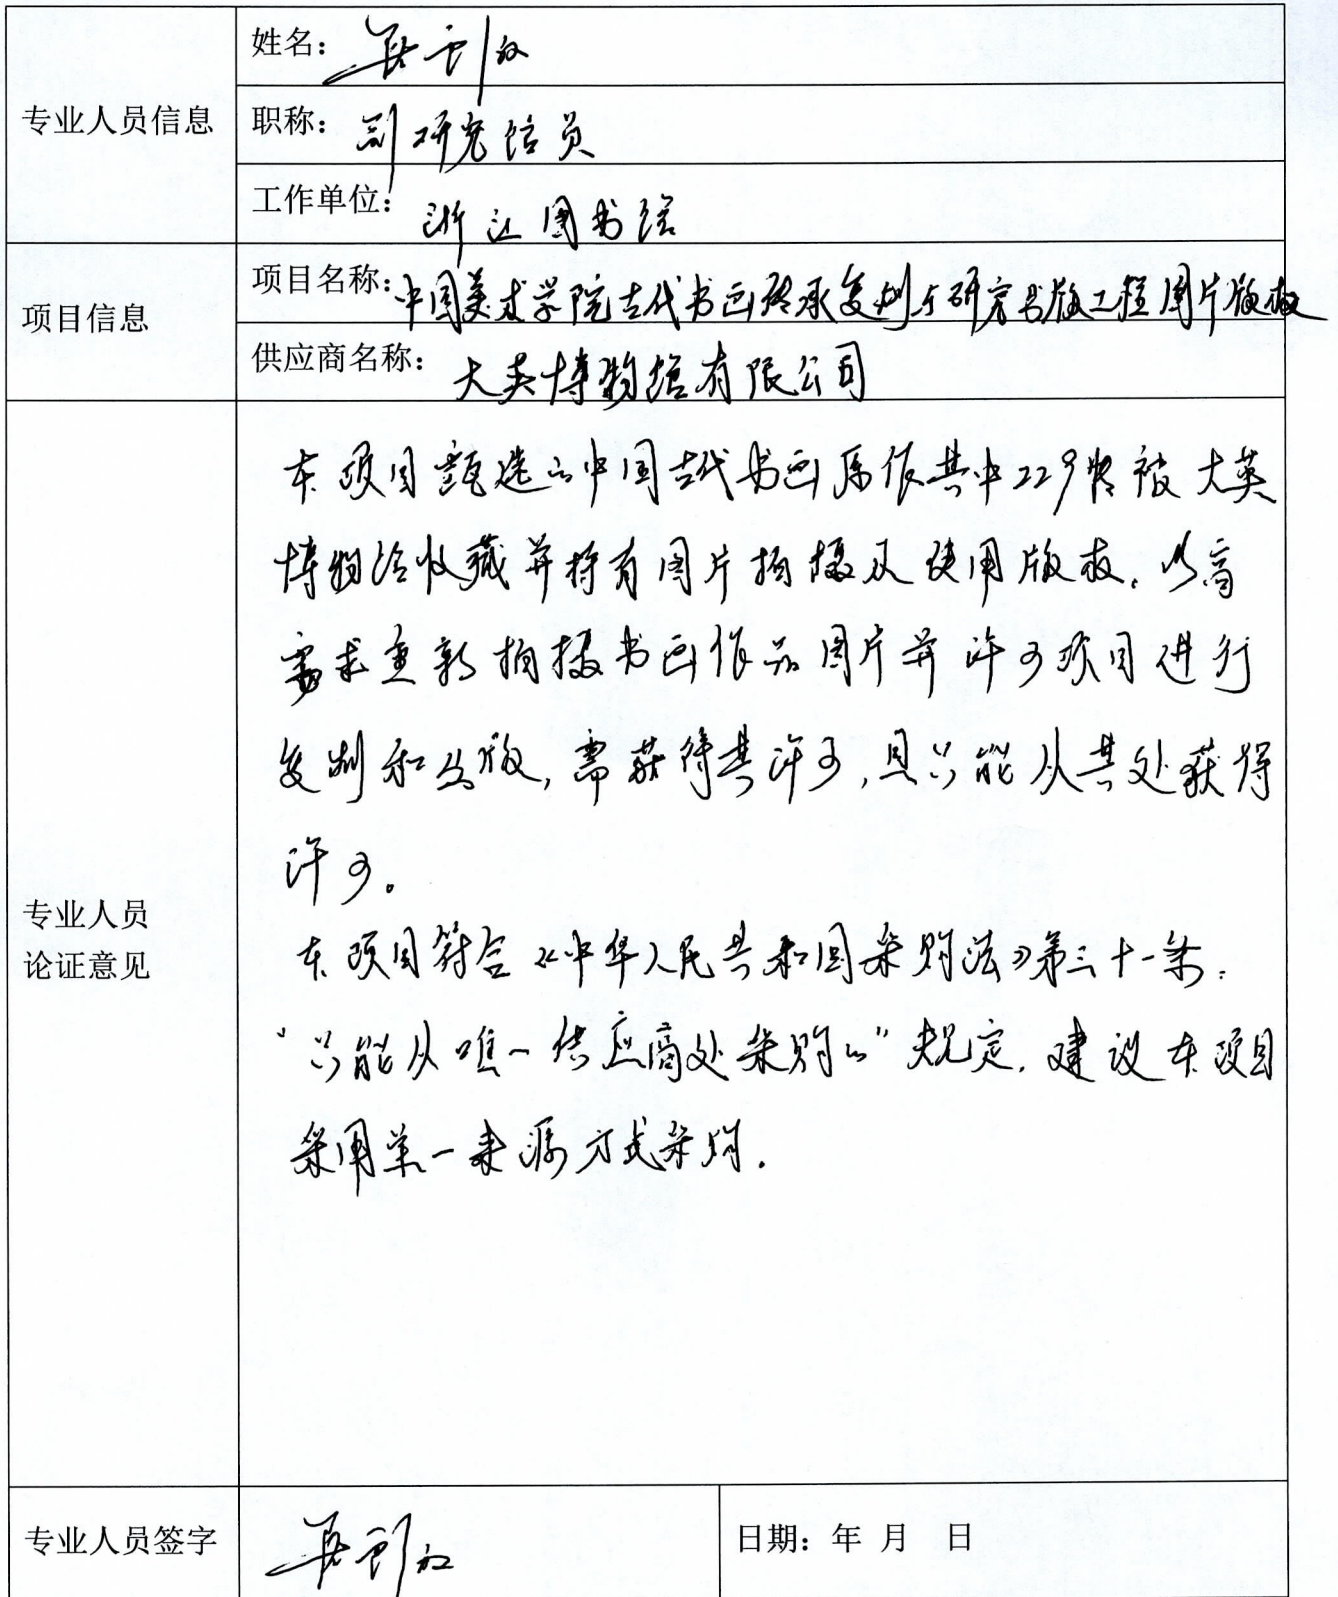 姓名:
专业人员信息
职称: 副研究馆员
工作单位: 浙江图书馆
项目信息
项目名称: 中国美术学院古代书画传承复制与研究出版工程图片版权
供应商名称: 大英博物馆有限公司
本项目甄选的中国古代书画原作其中229件被大英
博物馆收藏并持有图片拍摄及使用版权。以高
需求重新拍摄书画作品图片并许可项目进行
复制和出版,需获得其许可,且只能从其处获得
许可。
专业人员
论证意见
本项目符合《中华人民共和国采购法》第三十一条:
"只能从唯一供应商处采购的"规定.建议本项目
采用单一来源方式采购.
专业人员签字
日期: 年 月 日